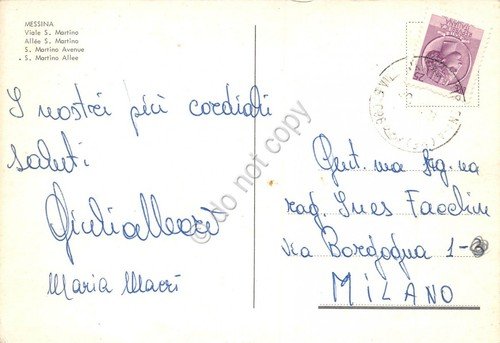 MESSINA
Viale S. Martino
Allée S. Martino
S. Martino Avenue
S. Martino Allee
I nostri più cordiali
saluti
Giulia Macrì
Maria Macrì
Gent.ma Sig.na
rag. Ines Facchini
via Borgogna 1-
MILANO
do not copy